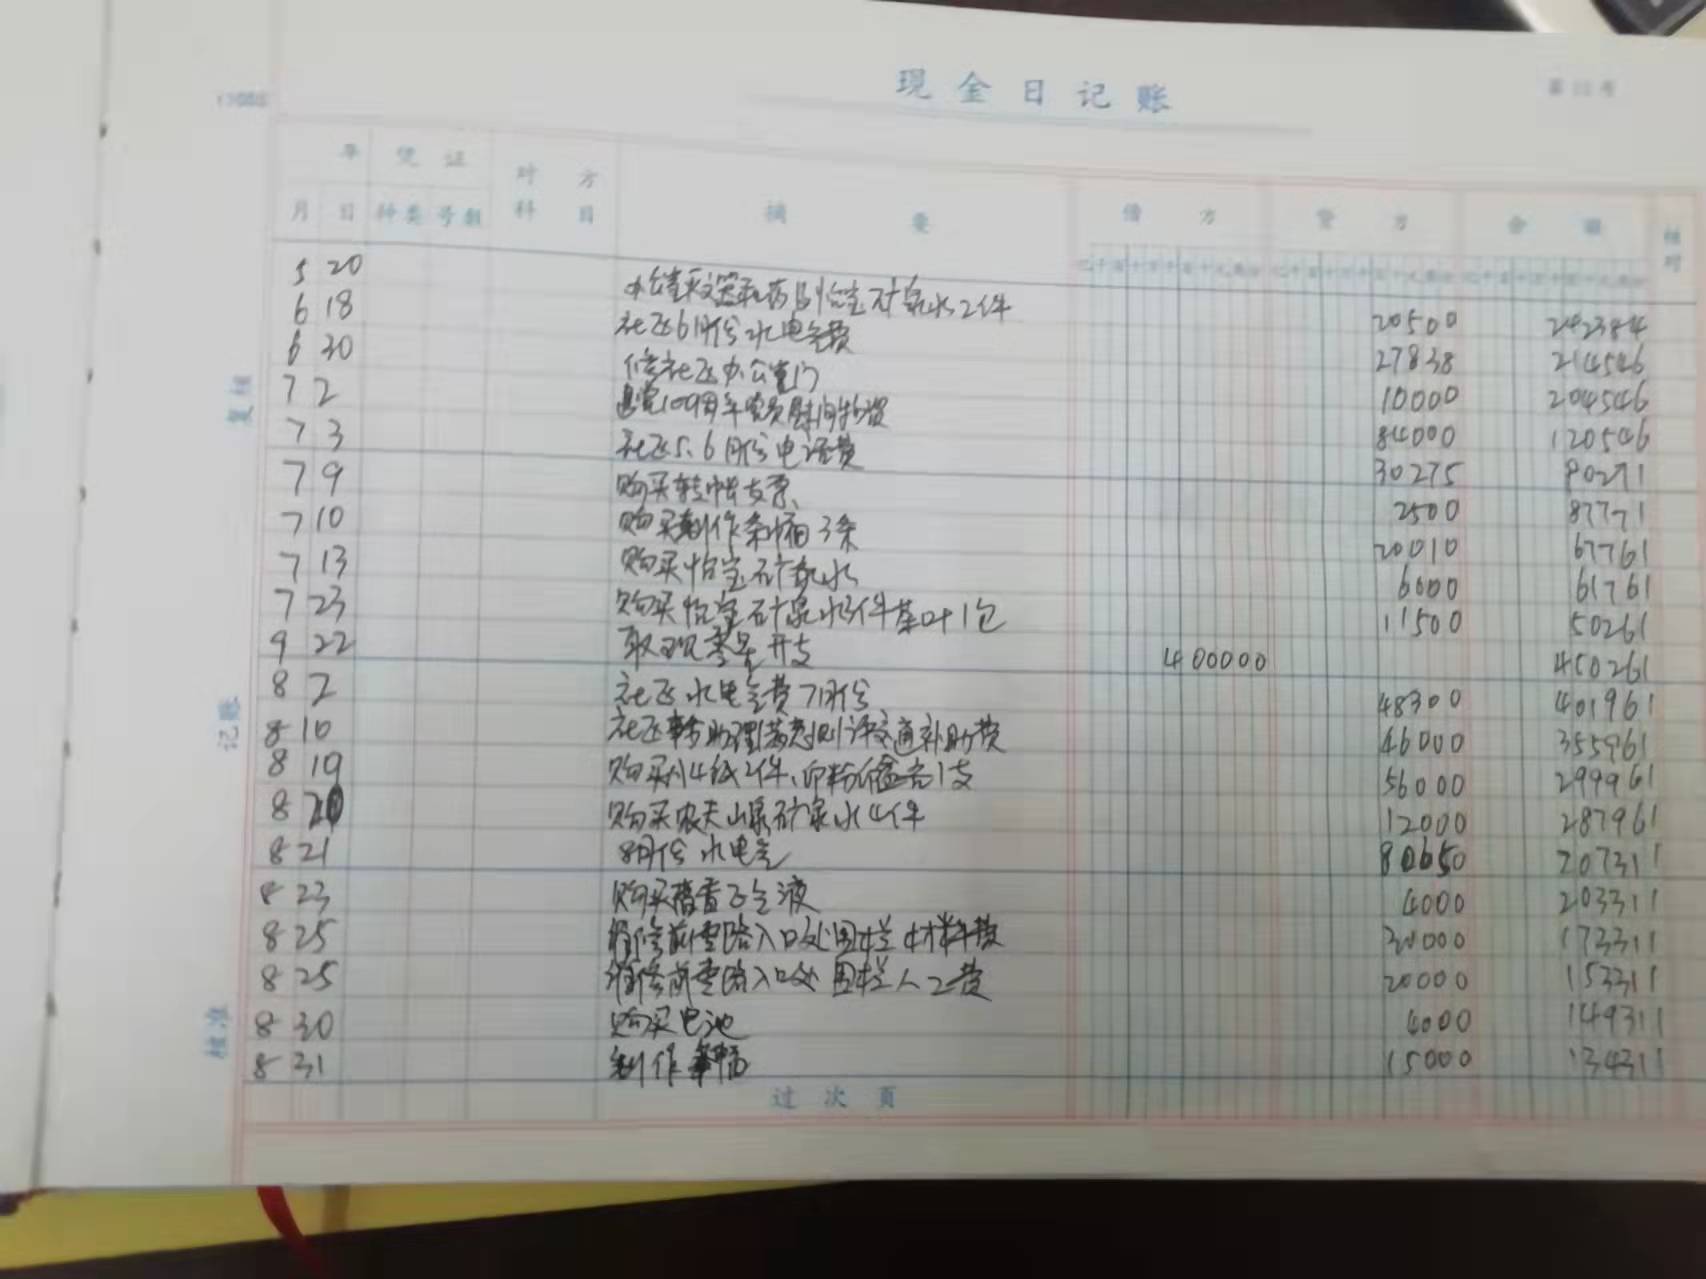 现金日记账
年 凭证 对方 摘要 借方 贷方 余额 核对
月 日 种类 号数 科目
5 20 怡宝矿泉水2件 20500 242384
6 18 社区6月份水电气费 27838 214546
6 30 修社区办公室门 10000 204546
7 2 建党109周年党员慰问物资 84000 120546
7 3 社区5、6月份电话费 30275 90271
7 9 购买转帐支票、 2500 87771
7 10 购买制作条幅3条 20010 67761
7 13 购买怡宝矿泉水 6000 61761
7 23 购买怡宝矿泉水3件茶叶1包 11500 50261
9 22 取现零星开支 400000 450261
8 2 社区水电气费7月份 48300 401961
8 10 社区 交通补助费 46000 355961
8 19 购买A4纸2件、 1支 56000 299961
8 20 购买农夫山泉矿泉水4件 12000 287961
8 21 8月份水电气 80650 207311
8 23 购买藿香正气液 4000 203311
8 25 维修前 路入口处围栏材料费 30000 173311
8 25 维修前 路入口处围栏人工费 20000 153311
8 30 购买电池 4000 149311
8 31 制作 幅 15000 134311
过次页
复核
记账
核准